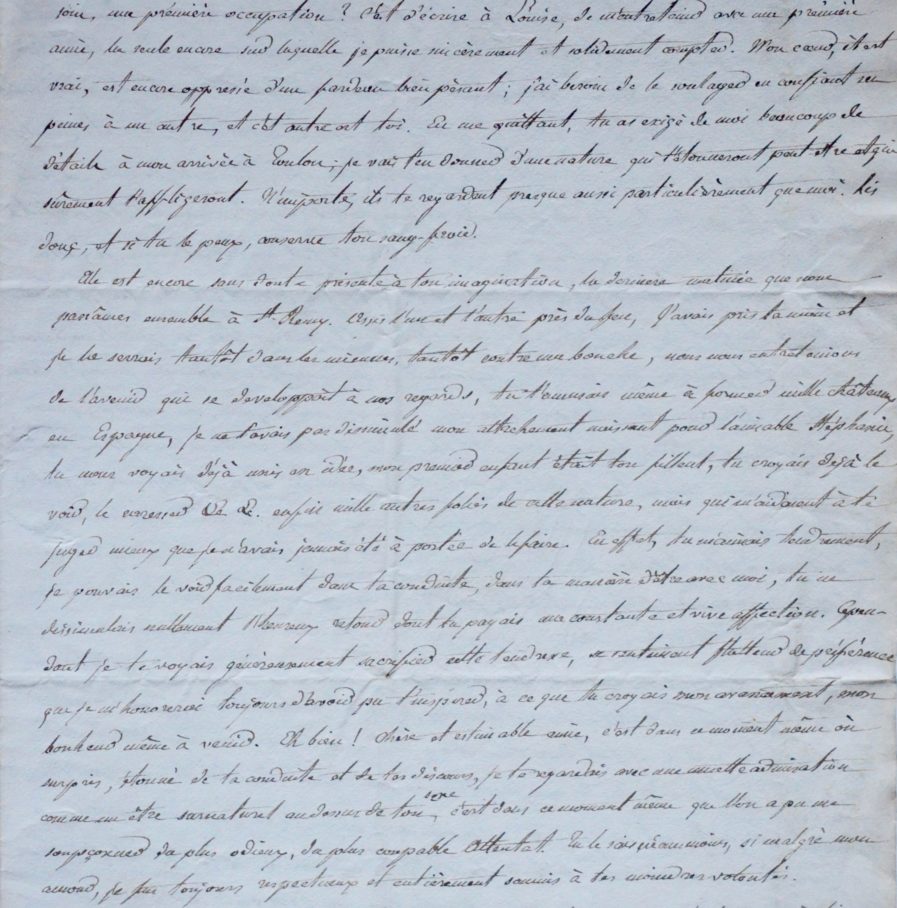 soin, ma première occupation ? C'est d'écrire à Louise, de m'entretenir avec ma première
amie, la seule encore sur laquelle je puisse sincèrement et solidement compter. Mon cœur, il est
vrai, est encore oppressé d'un fardeau bien pésant ; j'ai besoin de le soulager en confiant mes
peines à un autre, et cet autre est toi. En me quittant, tu as exigé de moi beaucoup de
détails à mon arrivée à Toulon ; je vais t'en donner d'une nature qui t'étonneront peut être et qui
sûrement t'affligeront. N'importe, ils te regardent presque aussi particulièrement que moi. Lis
donc, et si tu le peux, conserve ton sang-froid.
Elle est encore sans doute présente à ton imagination, la dernière matinée que nous
passâmes ensemble à St. Remy. Assis l'un et l'autre près du feu, j'avais pris ta main et
je la serrais tantôt dans les miennes, tantôt contre ma bouche, nous nous entretenions
de l'avenir qui se développait à nos regards, tu t'amusais même à former mille châteaux
en Espagne, je ne t'avais pas dissimulé mon attachement naissant pour l'aimable Stéphanie,
tu nous voyais déjà unis en idée, mon premier enfant était ton filleul, tu croyais déjà le
voir, le caresser &c &. enfin mille autres folies de cette nature, mais qui m'aidaient à te
juger mieux que je n'avais jamais été à portée de le faire. En effet, tu m'aimais tendrement,
je pouvais le voir facilement dans ta conduite, dans ta manière d'être avec moi, tu ne
dissimulais nullement l'heureux retour dont tu payais ma constante et vive affection. Cepen-
dant je te voyais généreusement sacrifier cette tendresse, ce sentiment flatteur de préférence
que je m'honorerai toujours d'avoir pu t'inspirer, à ce que tu croyais mon avancement, mon
bonheur même à venir. Eh bien ! chère et estimable amie, c'est dans ce moment même où
surpris, étonné de ta conduite et de tes discours, je te regardais avec une muette admiration
comme un être surnaturel au dessus de ton sexe, c'est dans ce moment même que l'on a pu me
soupçonner du plus odieux, du plus coupable attentat. Tu le sais néanmoins, si malgré mon
amour, je fus toujours respectueux et entièrement soumis à tes moindres volontés.